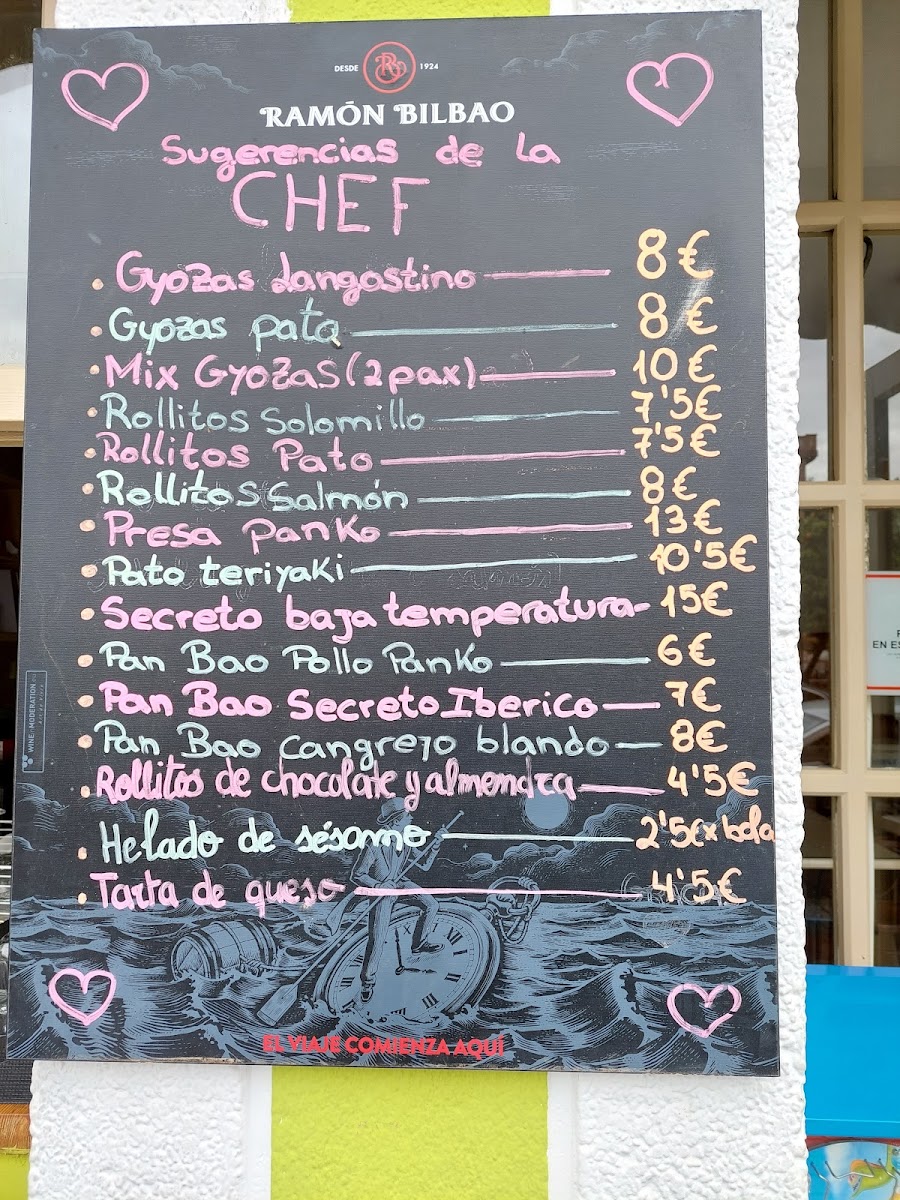 DESDE 1924
RAMÓN BILBAO
Sugerencias de la
CHEF
Gyozas Langostino 8€
Gyozas pata 8€
Mix Gyozas (2pax) 10€
Rollitos Solomillo 7'5€
Rollitos Pato 7'5€
Rollitos Salmón 8€
Presa panko 13€
Pato teriyaki 10'5€
Secreto baja temperatura 15€
Pan Bao Pollo Panko 6€
Pan Bao Secreto Iberico 7€
Pan Bao cangrejo blando 8€
Rollitos de chocolate y almendra 4'5€
Helado de sésamo 2'5€ x bola
Tarta de queso 4'5€
EL VIAJE COMIENZA AQUÍ
WINE in MODERATION
EN ES